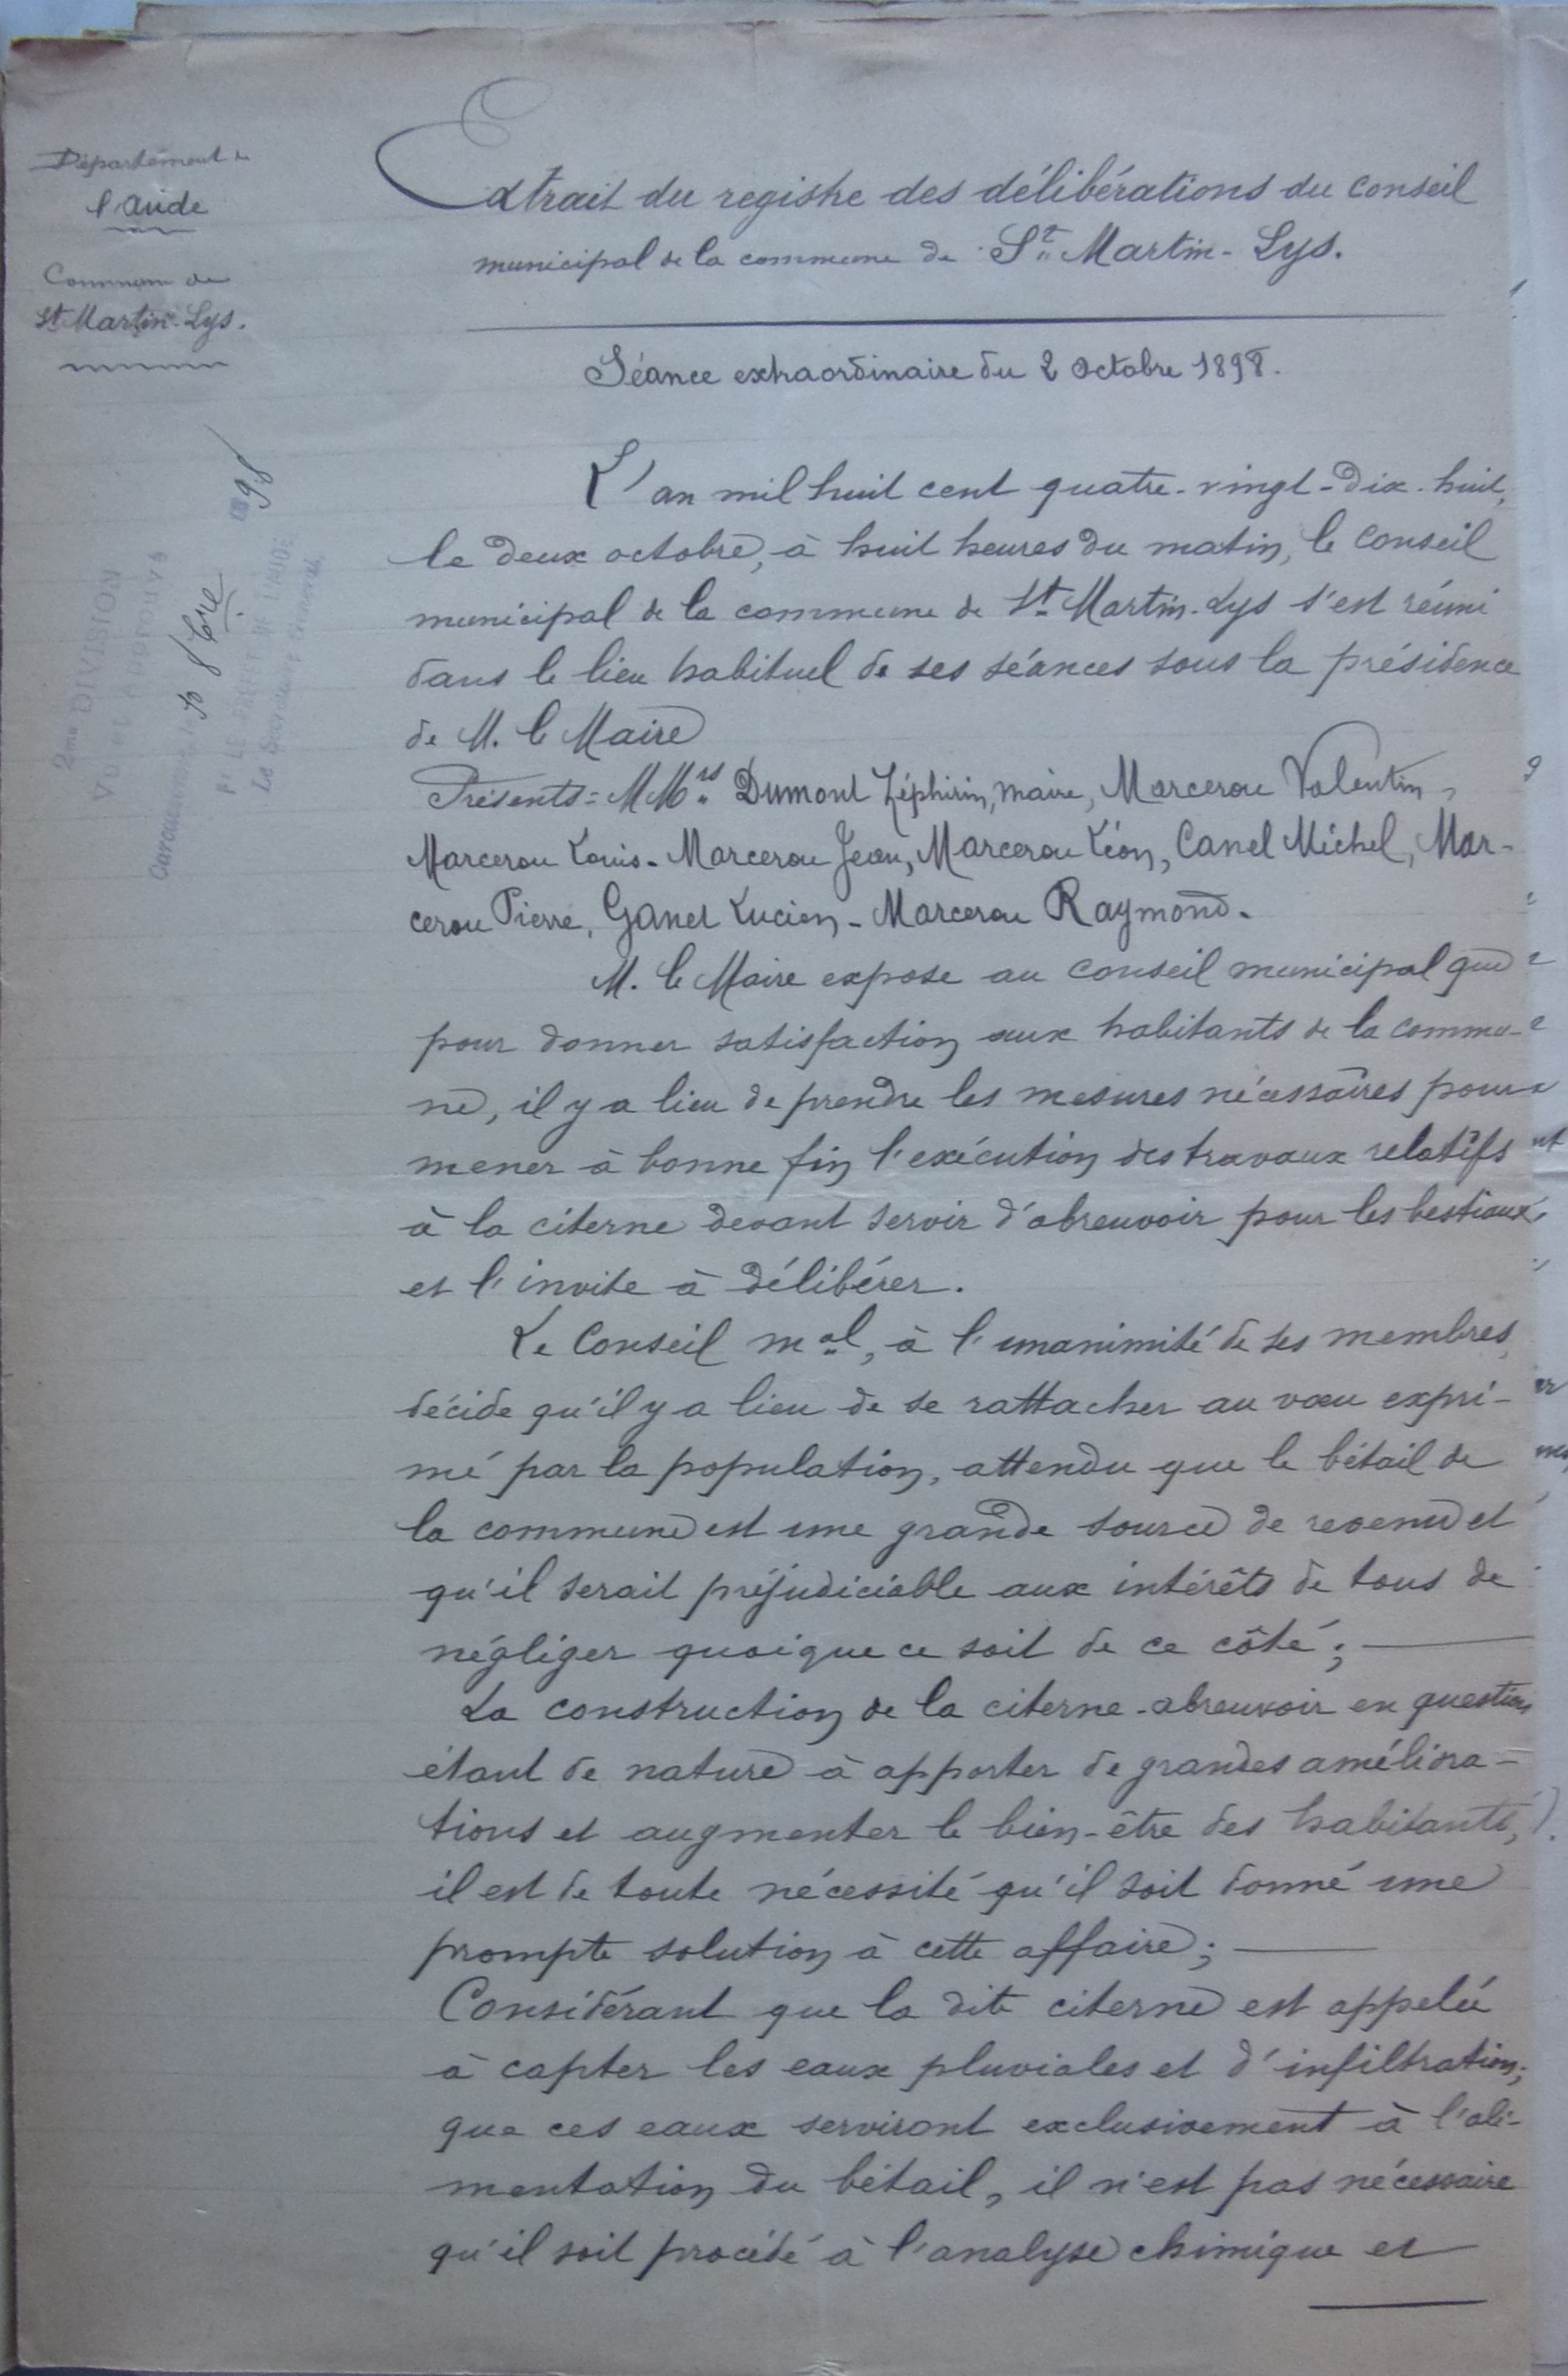 Département de
l'Aude
Commune de
St Martin-Lys.
Extrait du registre des délibérations du conseil
municipal de la commune de St Martin-Lys.
Séance extraordinaire du 2 octobre 1898.
2me DIVISION
Vu et approuvé
Carcassonne, le 10 8bre 1898
Pr LE PRÉFET DE L'AUDE
Le Secrétaire Général,
L'an mil huit cent quatre-vingt-dix-huit,
le deux octobre, à huit heures du matin, le conseil
municipal de la commune de St Martin-Lys s'est réuni
dans le lieu habituel de ses séances sous la présidence
de M. le Maire
Présents = MMrs Dumont Zéphirin, maire, Marcerou Valentin,
Marcerou Louis - Marcerou Jean, Marcerou Léon, Canel Michel, Mar-
cerou Pierre, Ganel Lucien - Marcerou Raymond.
M. le Maire expose au conseil municipal que
pour donner satisfaction aux habitants de la commu-
ne, il y a lieu de prendre les mesures nécessaires pour
mener à bonne fin l'exécution des travaux relatifs
à la citerne devant servir d'abreuvoir pour les bestiaux,
et l'invite à délibérer.
Le Conseil mal, à l'unanimité de ses membres,
décide qu'il y a lieu de se rattacher au vœu expri-
mé par la population, attendu que le bétail de
la commune est une grande source de revenu et
qu'il serait préjudiciable aux intérêts de tous de
négliger quoique ce soit de ce côté ;
La construction de la citerne-abreuvoir en question
étant de nature à apporter de grandes améliora-
tions et augmenter le bien-être des habitants,
il est de toute nécessité qu'il soit donné une
prompte solution à cette affaire ;
Considérant que la dite citerne est appelée
à capter les eaux pluviales et d'infiltration ;
que ces eaux serviront exclusivement à l'ali-
mentation du bétail, il n'est pas nécessaire
qu'il soit procédé à l'analyse chimique et